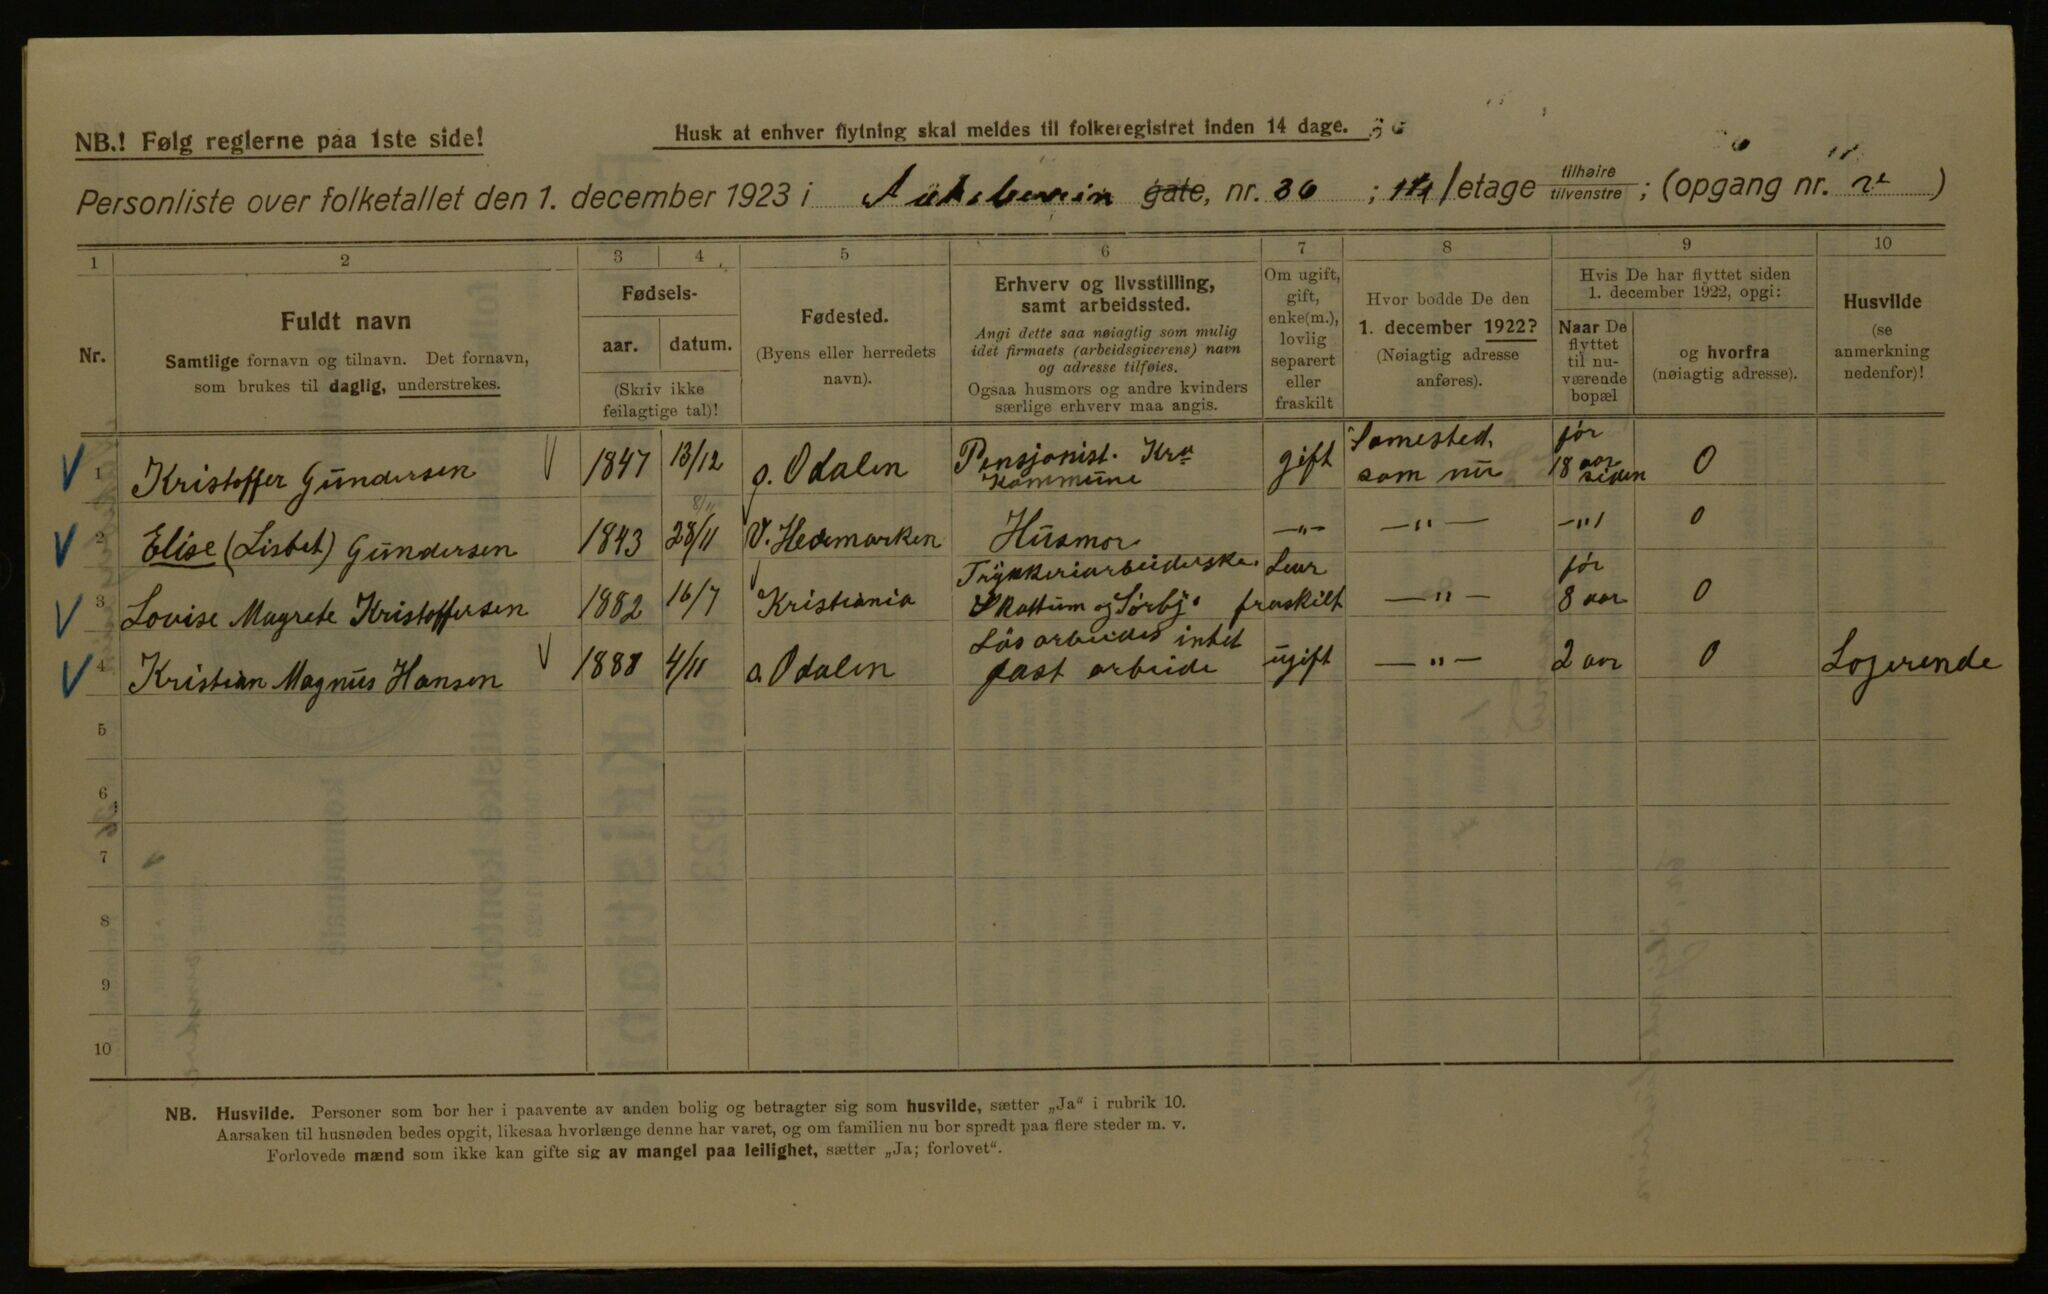 NB.! Følg reglerne paa 1ste side!
Husk at enhver flytning skal meldes til folkeregistret inden 14 dage.
Personliste over folketallet den 1. december 1923 i gate, nr. 36 ; etage tilhøire tilvenstre ; (opgang nr. )
1 2 3 4 5 6 7 8 9 10
Nr.
Fuldt navn
Samtlige fornavn og tilnavn. Det fornavn,
som brukes til daglig, understrekes.
Fødsels-
aar. datum.
(Skriv ikke
feilagtige tal)!
Fødested.
(Byens eller herredets
navn).
Erhverv og livsstilling,
samt arbeidssted.
Angi dette saa nøiagtig som mulig
idet firmaets (arbeidsgiverens) navn
og adresse tilføies.
Ogsaa husmors og andre kvinders
særlige erhverv maa angis.
Om ugift,
gift,
enke(m.),
lovlig
separert
eller
fraskilt
Hvor bodde De den
1. december 1922?
(Nøiagtig adresse
anføres).
Hvis De har flyttet siden
1. december 1922, opgi:
Naar De
flyttet
til nu-
værende
bopæl
og hvorfra
(nøiagtig adresse).
Husvilde
(se
anmerkning
nedenfor)!
1 Kristoffer Gundersen 1847 13/12 Odalen Pensjonist. Kra Kommune gift Samested som nu før 18 aar siden 0
2 Elise (Lisbet) Gundersen 1843 28/11 8/11 V. Hedemarken Husmor —„— —„— —„— 0
3 Lovise Magrete Kristoffersen 1882 16/7 Kristiania Trykkeriarbeiderske. Skattum og Sørby. fraskilt —„— før 8 aar 0
4 Kristian Magnus Hansen 1888 4/11 Odalen Løsarbeides intet fast arbeide ugift —„— 2 aar 0 Losjerende
5
6
7
8
9
10
NB. Husvilde. Personer som bor her i paavente av anden bolig og betragter sig som husvilde, sætter „Ja“ i rubrik 10.
Aarsaken til husnøden bedes opgit, likesaa hvorlænge denne har varet, og om familien nu bor spredt paa flere steder m. v.
Forlovede mænd som ikke kan gifte sig av mangel paa leilighet, sætter „Ja; forlovet“.